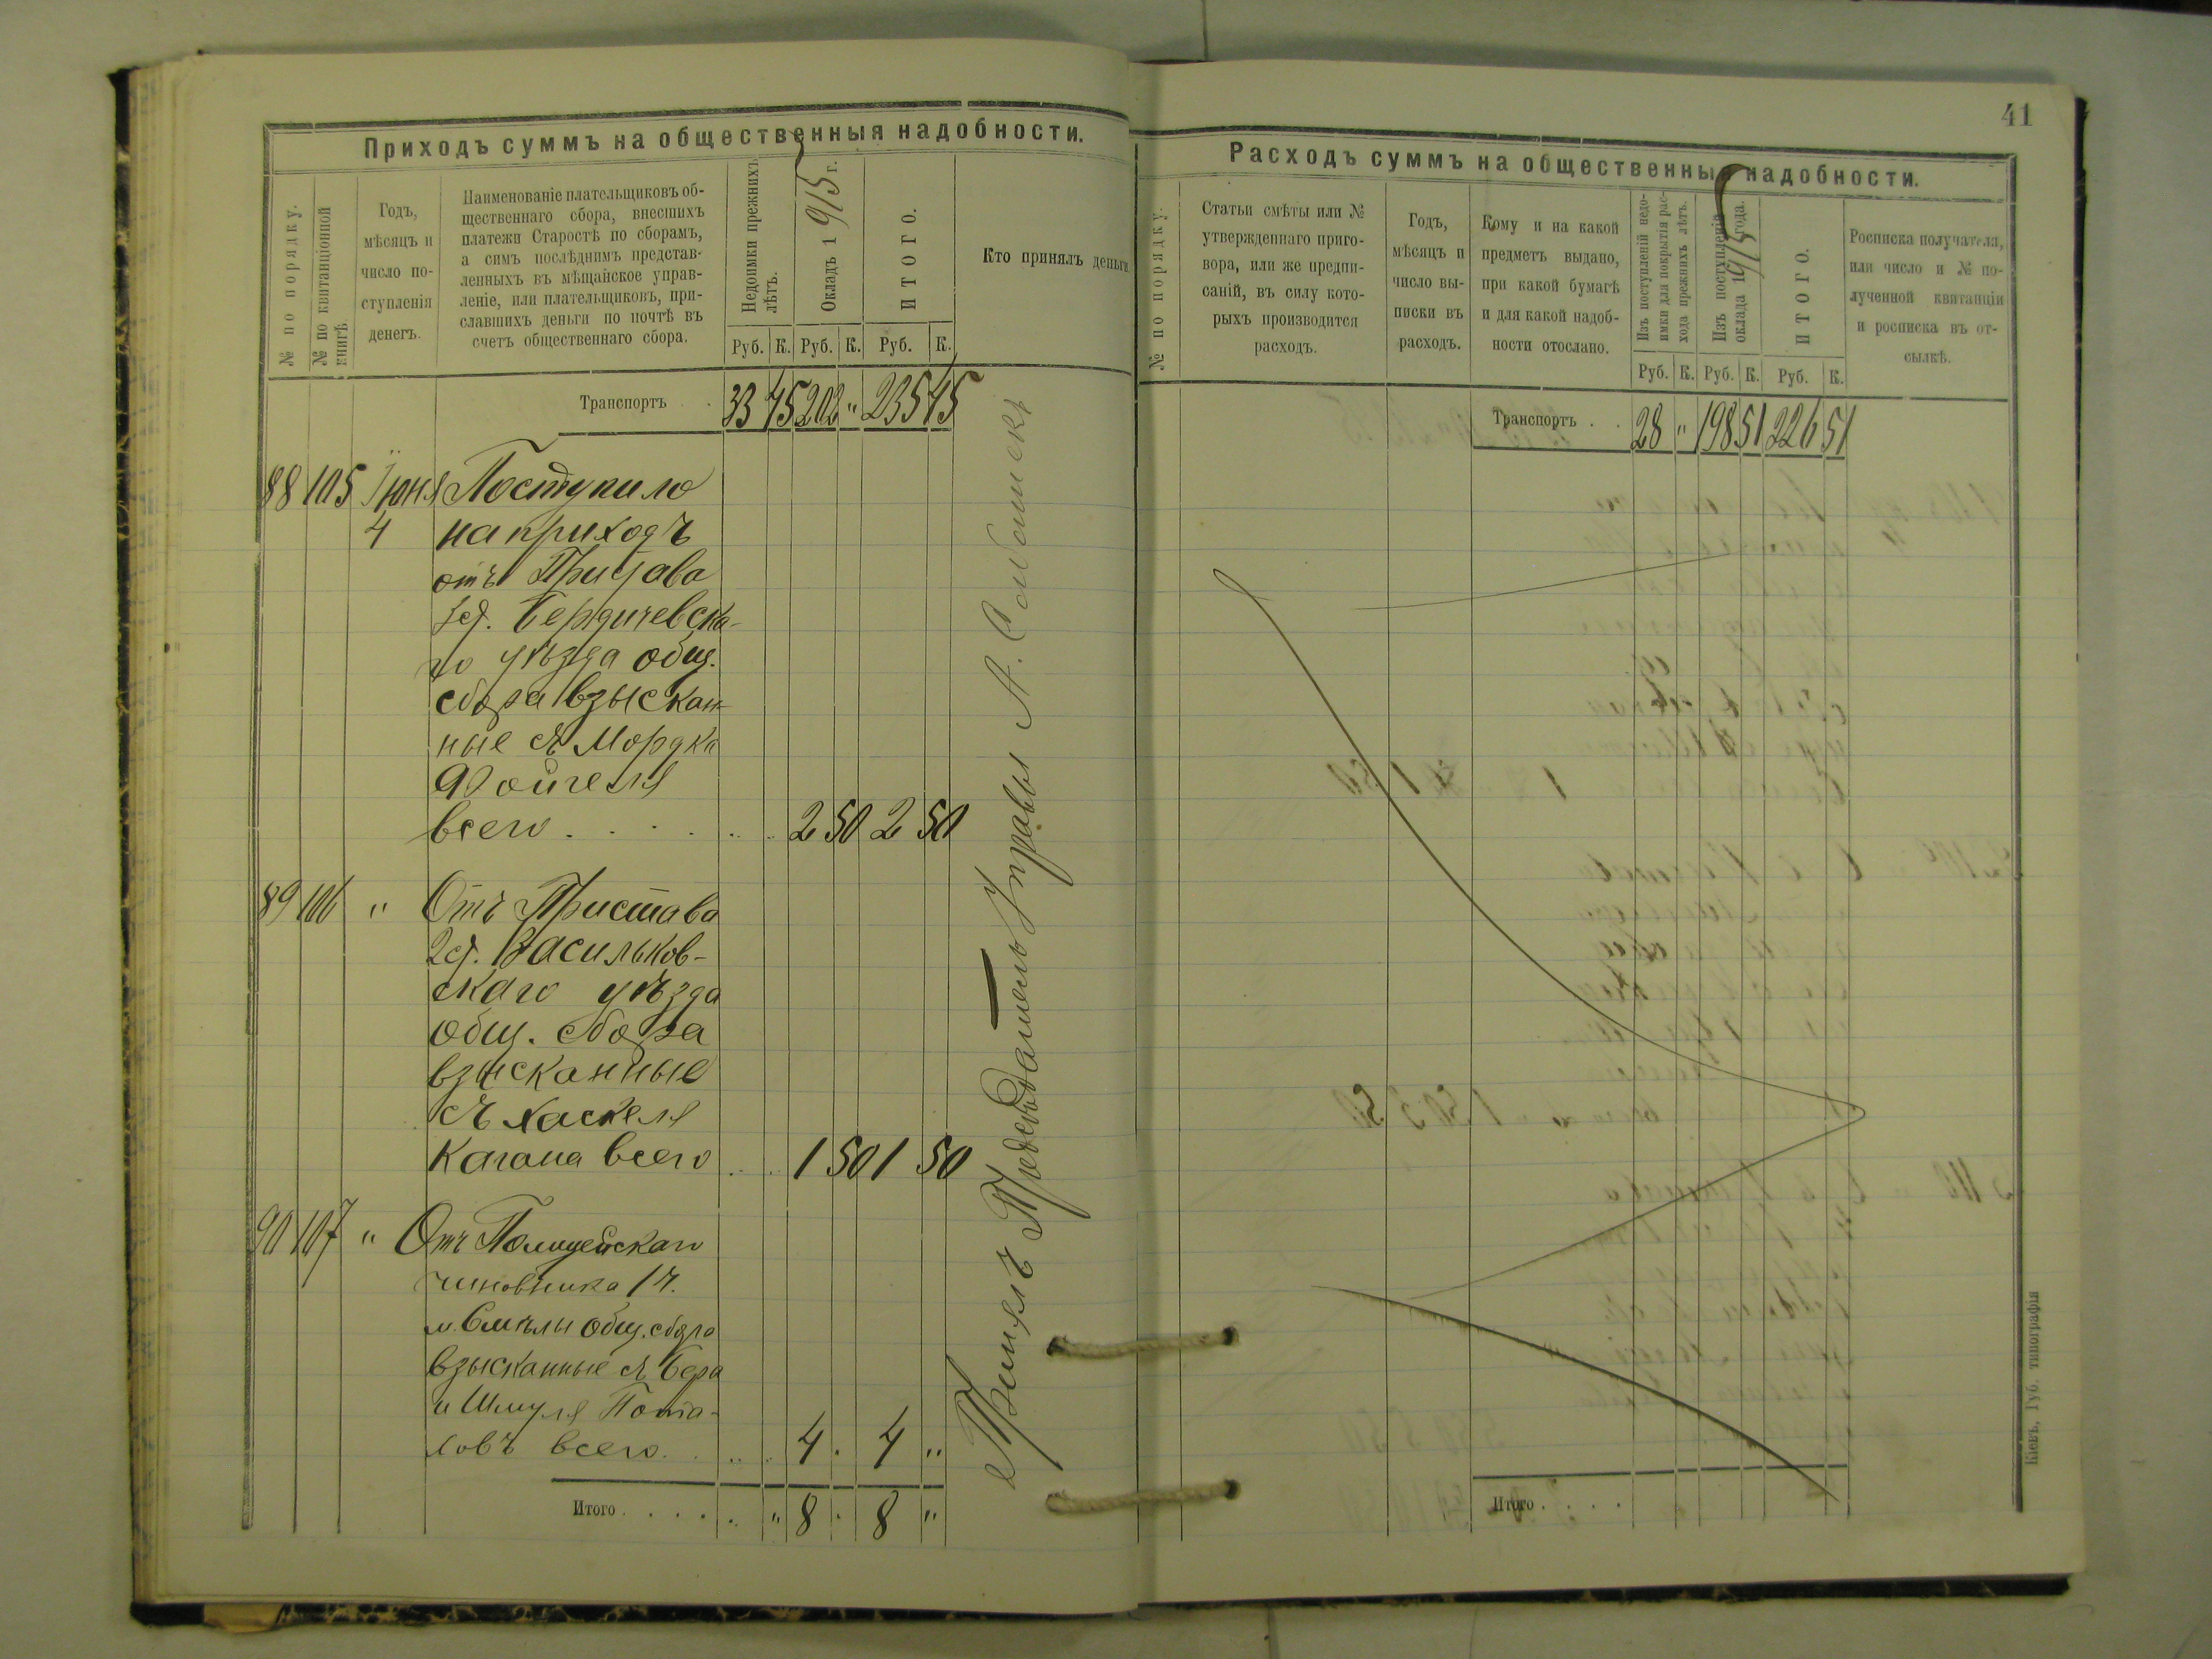 41
Приходъ суммъ на общественныя надобности.
№ по порядку.
№ по квитанціонной книгѣ
Годъ,
мѣсяцъ и
число по-
ступленія
денегъ.
Наименованіе плательщиковъ об-
щественнаго сбора, внесшихъ
платежи Старостѣ по сборамъ,
а симъ послѣднимъ представ-
ленныхъ въ мѣщанское управ-
леніе, или плательщиковъ, при-
славшихъ деньги по почтѣ въ
счетъ общественнаго сбора.
Недоимки прежнихъ
лѣтъ.
Окладъ 1915 г.
ИТОГО.
Кто принялъ деньги
Руб. К. Руб. К. Руб. К.
Транспортъ . . 33 45 202 " 235 45
88 105 Іюня Поступило
4 на приходъ
отъ Пристава
Бердичевска-
го уѣзда общ.
сбора взыскан-
ные съ Мордка
Фойгеля
всего . . . . . 2 50 2 50
89 106 " Отъ Пристава
2 ст. Васильков-
скаго уѣзда
общ. сбора
взысканные
съ Хаскеля
Кагана всего . . 1 50 1 50
90 107 " Отъ Полицейскаго
чиновника 1 ч.
м. Смѣлы общ. сбора
взысканные съ Бера
и Шмуля
всего . . . 4 . 4 "
Итого . . . . . " 8 . 8 "
Принялъ Предсѣдатель Управы А.
Расходъ суммъ на общественныя надобности.
№ по порядку.
Статьи смѣты или №
утвержденнаго приго-
вора, или же предпи-
саній, въ силу кото-
рыхъ производится
расходъ.
Годъ,
мѣсяцъ и
число вы-
писки въ
расходъ.
Кому и на какой
предметъ выдано,
при какой бумагѣ
и для какой надоб-
ности отослано.
Изъ поступленій недо-
имки для покрытія рас-
хода прежнихъ лѣтъ.
Изъ поступленій
оклада 1915 года.
ИТОГО.
Росписка получателя,
или число и № по-
лученной квитанціи
и росписка въ от-
сылкѣ.
Руб. К. Руб. К. Руб. К.
Транспортъ . . 28 " 198 51 226 51
Итого . . . .
Кіевъ, Губ. типографія